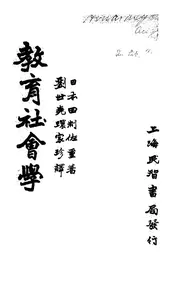 上海民智書局發行
日本田制佐重著
劉世尧環家珍譯
教育社會學